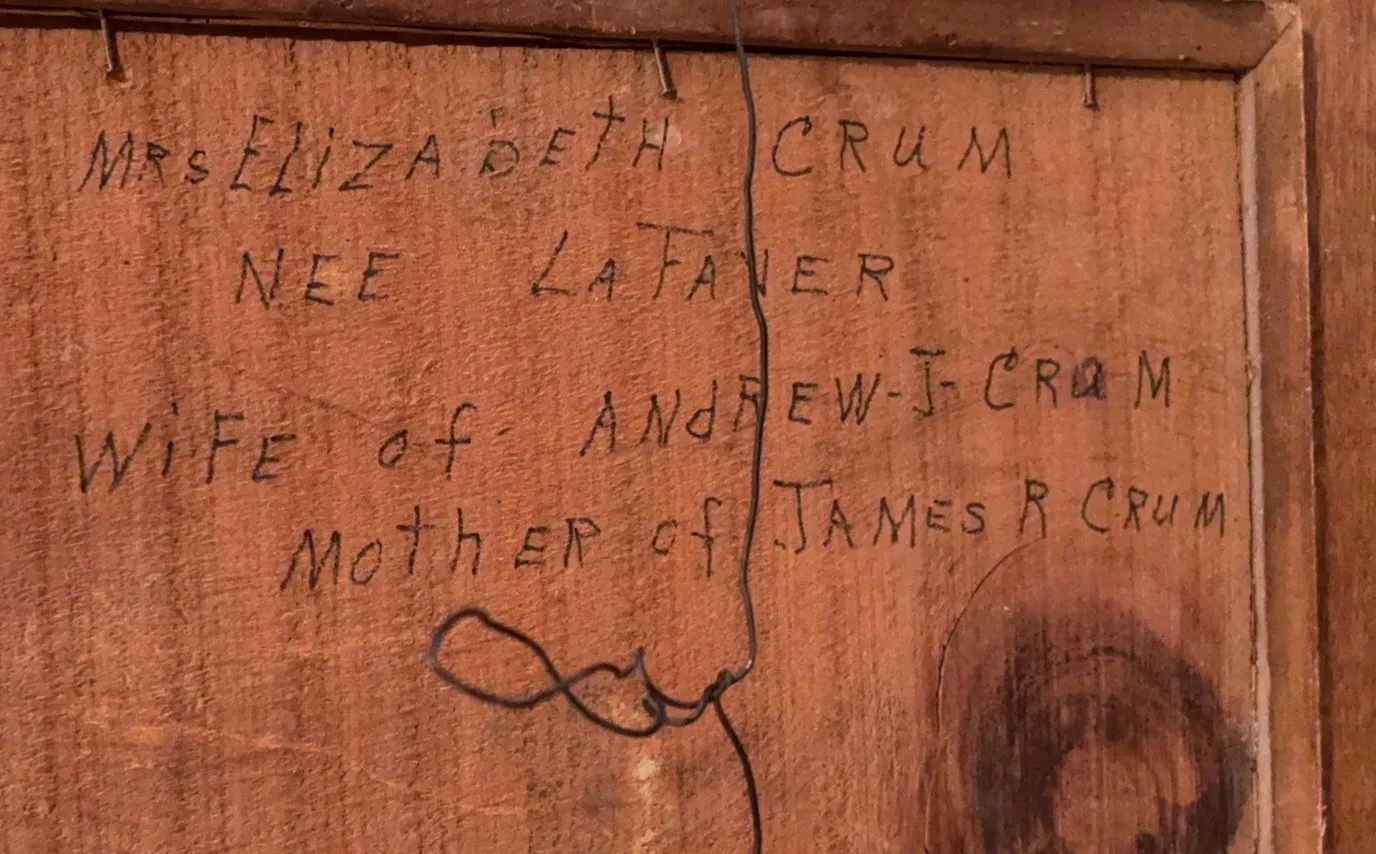 MRs ELiZABETH CRUM
NEE LAFAVER
WiFE of ANdREW-J-CRUM
MOthER of JAMES R CRUM